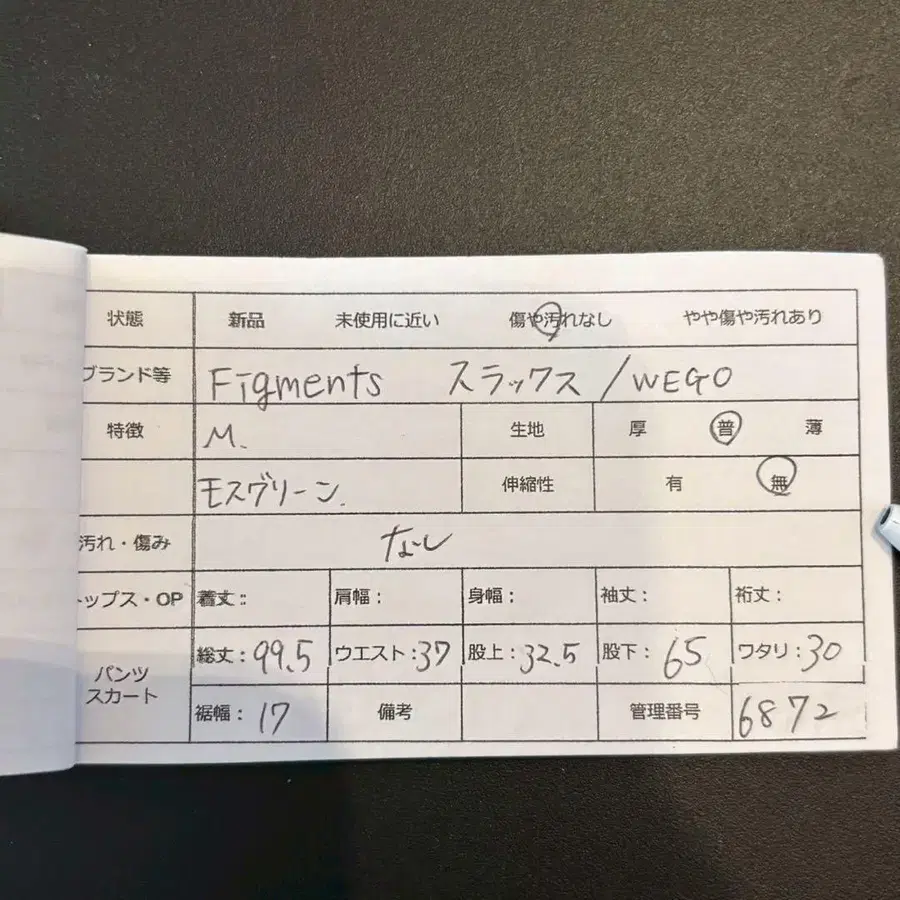 状態 新品 未使用に近い 傷や汚れなし やや傷や汚れあり
ブランド等 Figments スラックス /WEGO
特徴 M. 生地 厚 普 薄
モスグリーン. 伸縮性 有 無
汚れ・傷み なし
トップス・OP 着丈: 肩幅: 身幅: 袖丈: 裄丈:
パンツ スカート 総丈:99.5 ウエスト:37 股上:32.5 股下:65 ワタリ:30
裾幅:17 備考 管理番号 6872